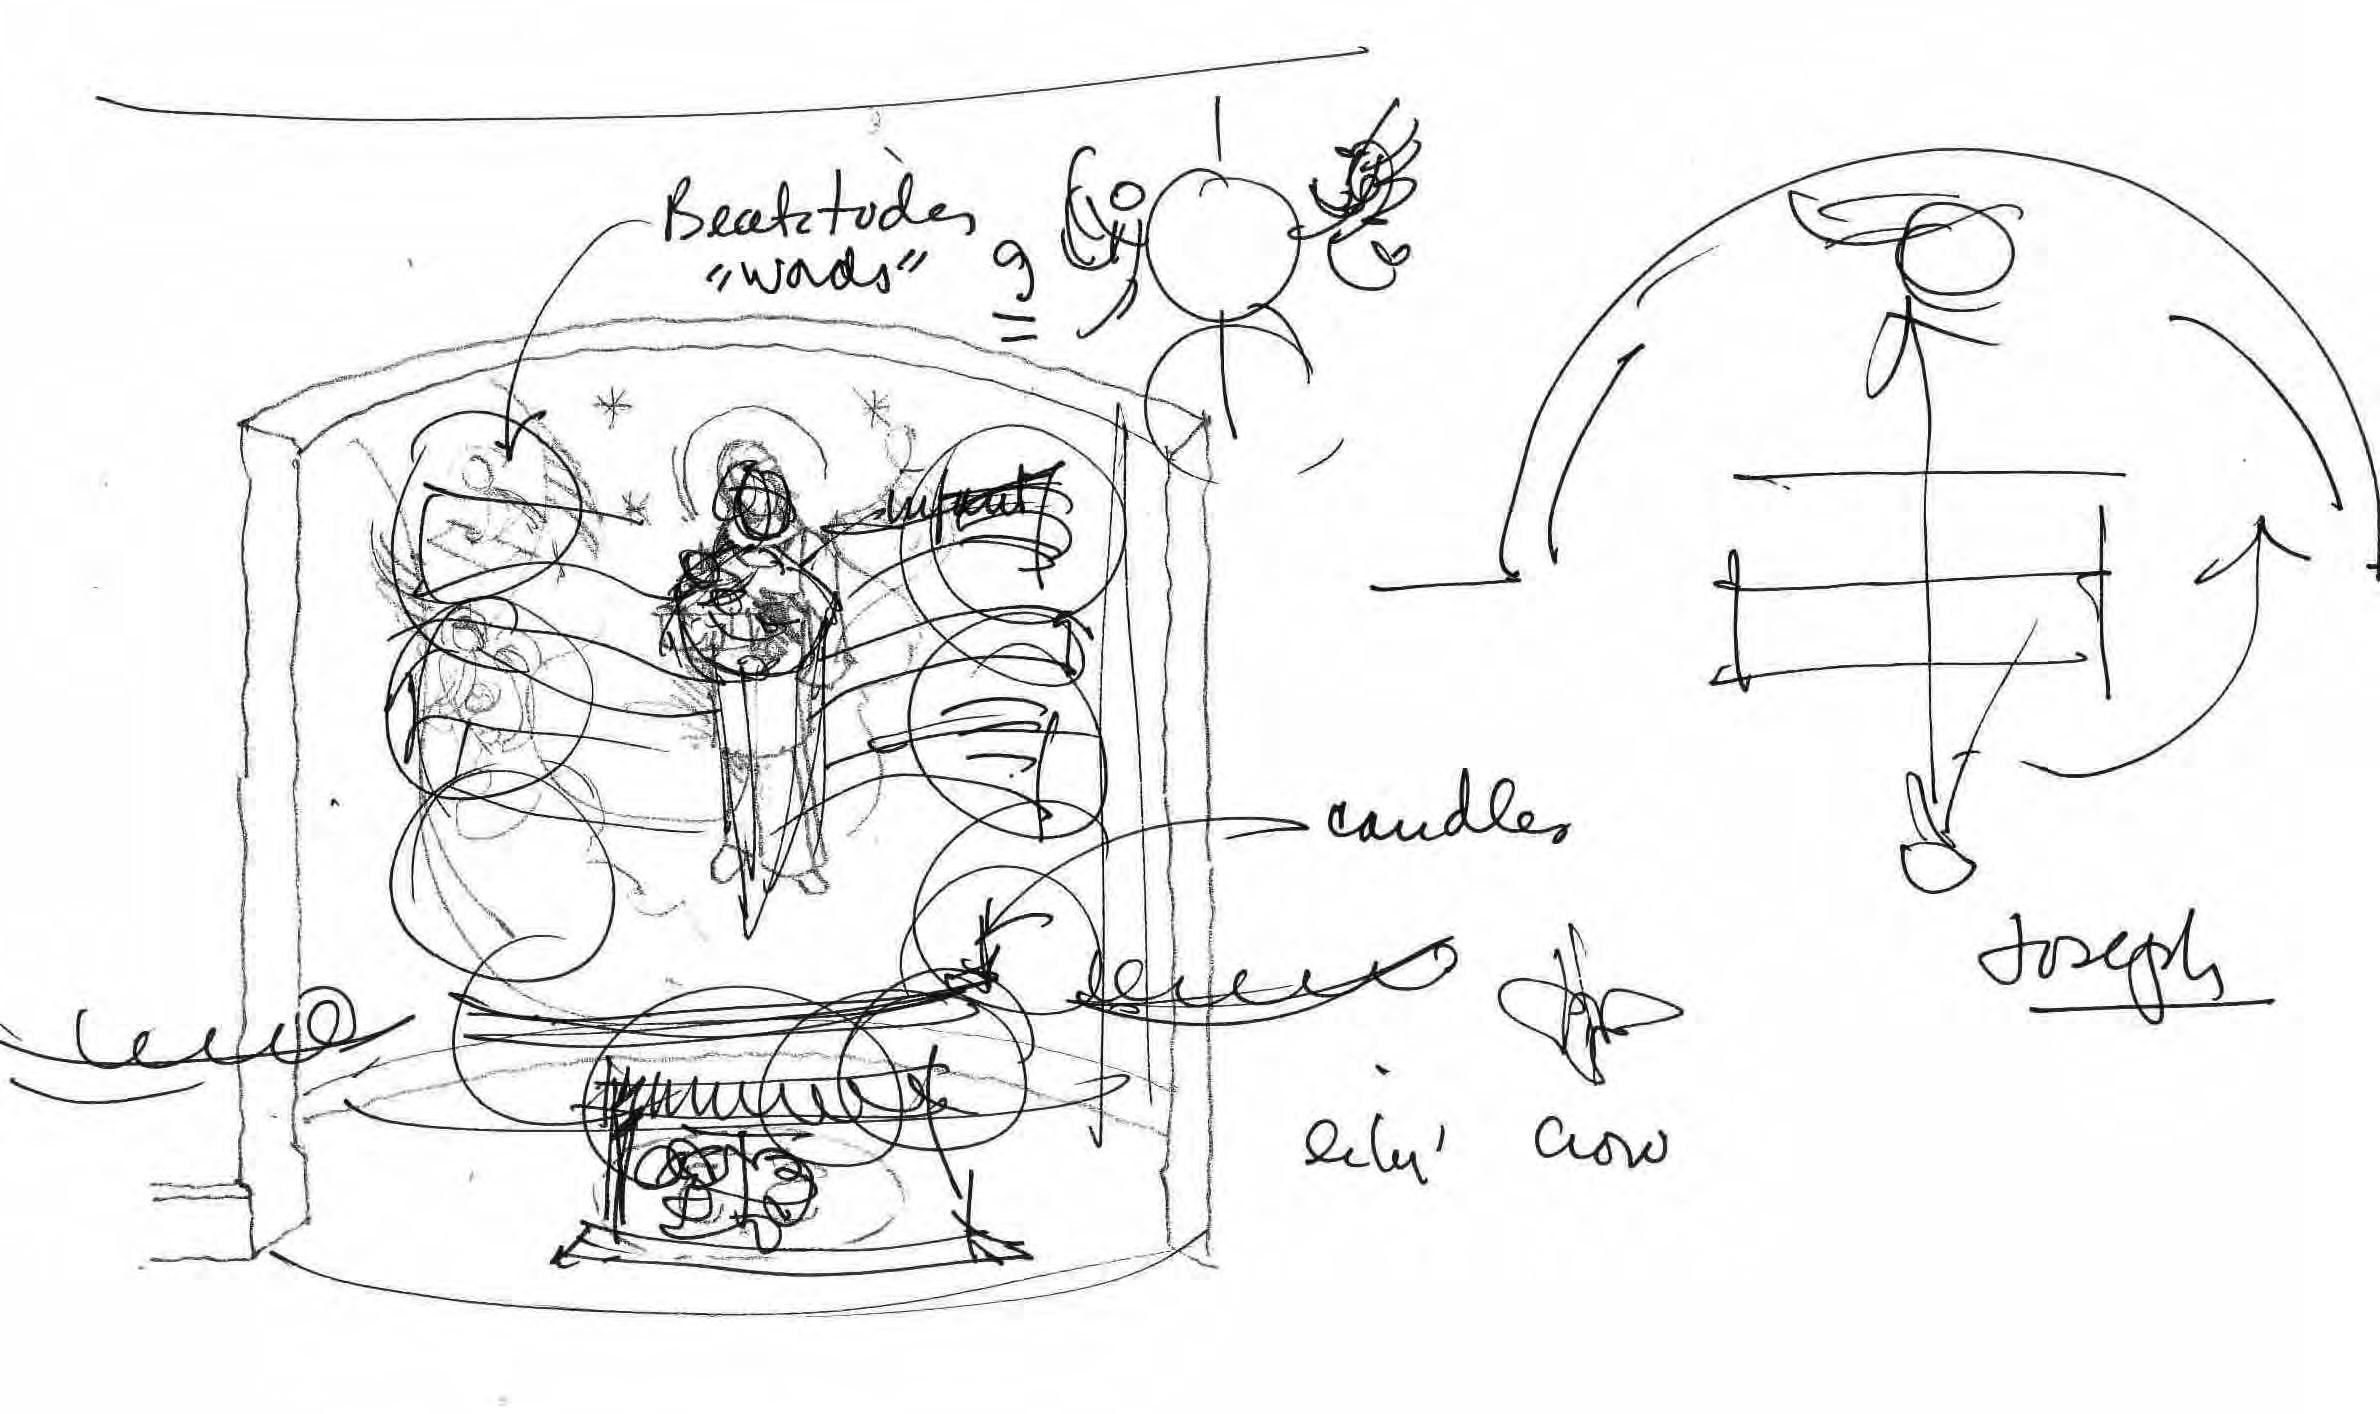 Beatitudes
"words" 9
infant
candles
Joseph